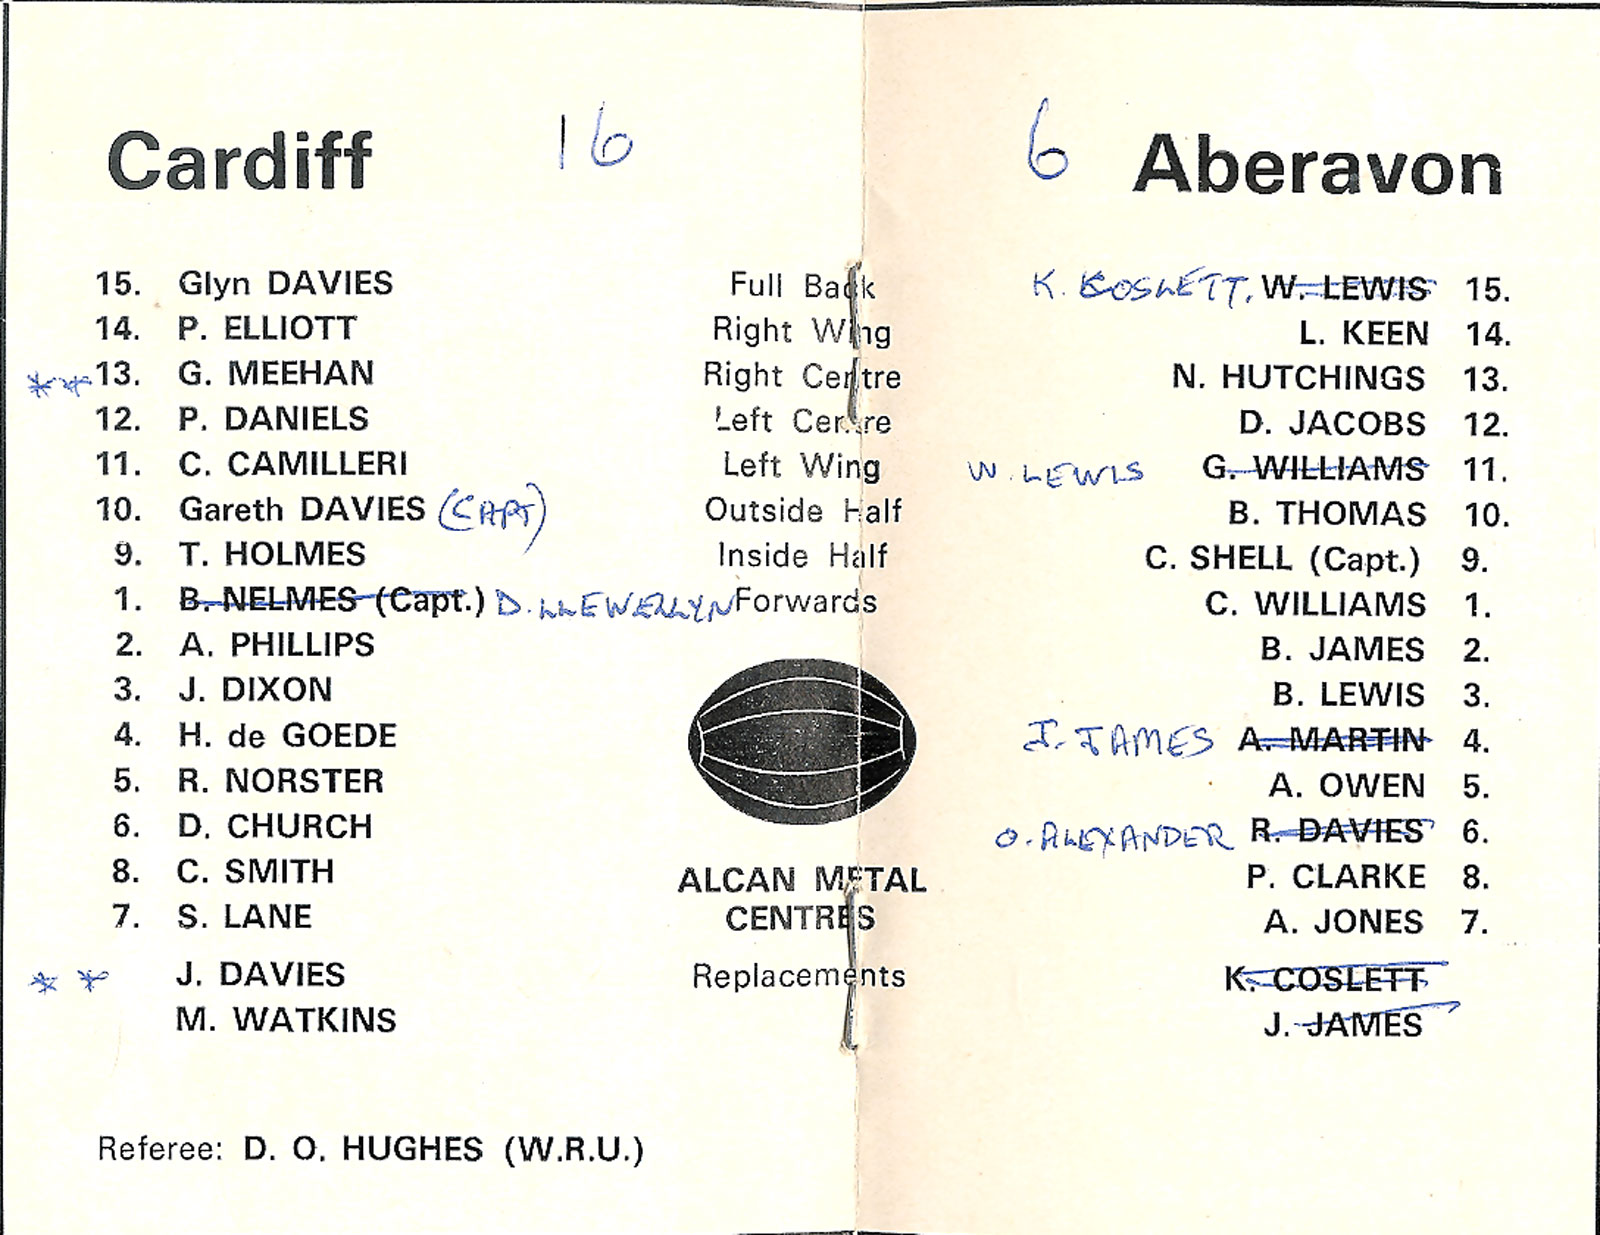 Cardiff 16 6 Aberavon
15. Glyn DAVIES Full Back K. COSLETT. W. LEWIS 15.
14. P. ELLIOTT Right Wing L. KEEN 14.
** 13. G. MEEHAN Right Centre N. HUTCHINGS 13.
12. P. DANIELS Left Centre D. JACOBS 12.
11. C. CAMILLERI Left Wing W. LEWIS G. WILLIAMS 11.
10. Gareth DAVIES (CAPT) Outside Half B. THOMAS 10.
9. T. HOLMES Inside Half C. SHELL (Capt.) 9.
1. B. NELMES (Capt.) D. LLEWELLYN Forwards C. WILLIAMS 1.
2. A. PHILLIPS B. JAMES 2.
3. J. DIXON B. LEWIS 3.
4. H. de GOEDE J. JAMES A. MARTIN 4.
5. R. NORSTER A. OWEN 5.
6. D. CHURCH O. ALEXANDER R. DAVIES 6.
8. C. SMITH P. CLARKE 8.
7. S. LANE A. JONES 7.
ALCAN METAL
CENTRES
** J. DAVIES Replacements K. COSLETT
M. WATKINS J. JAMES
Referee: D. O. HUGHES (W.R.U.)